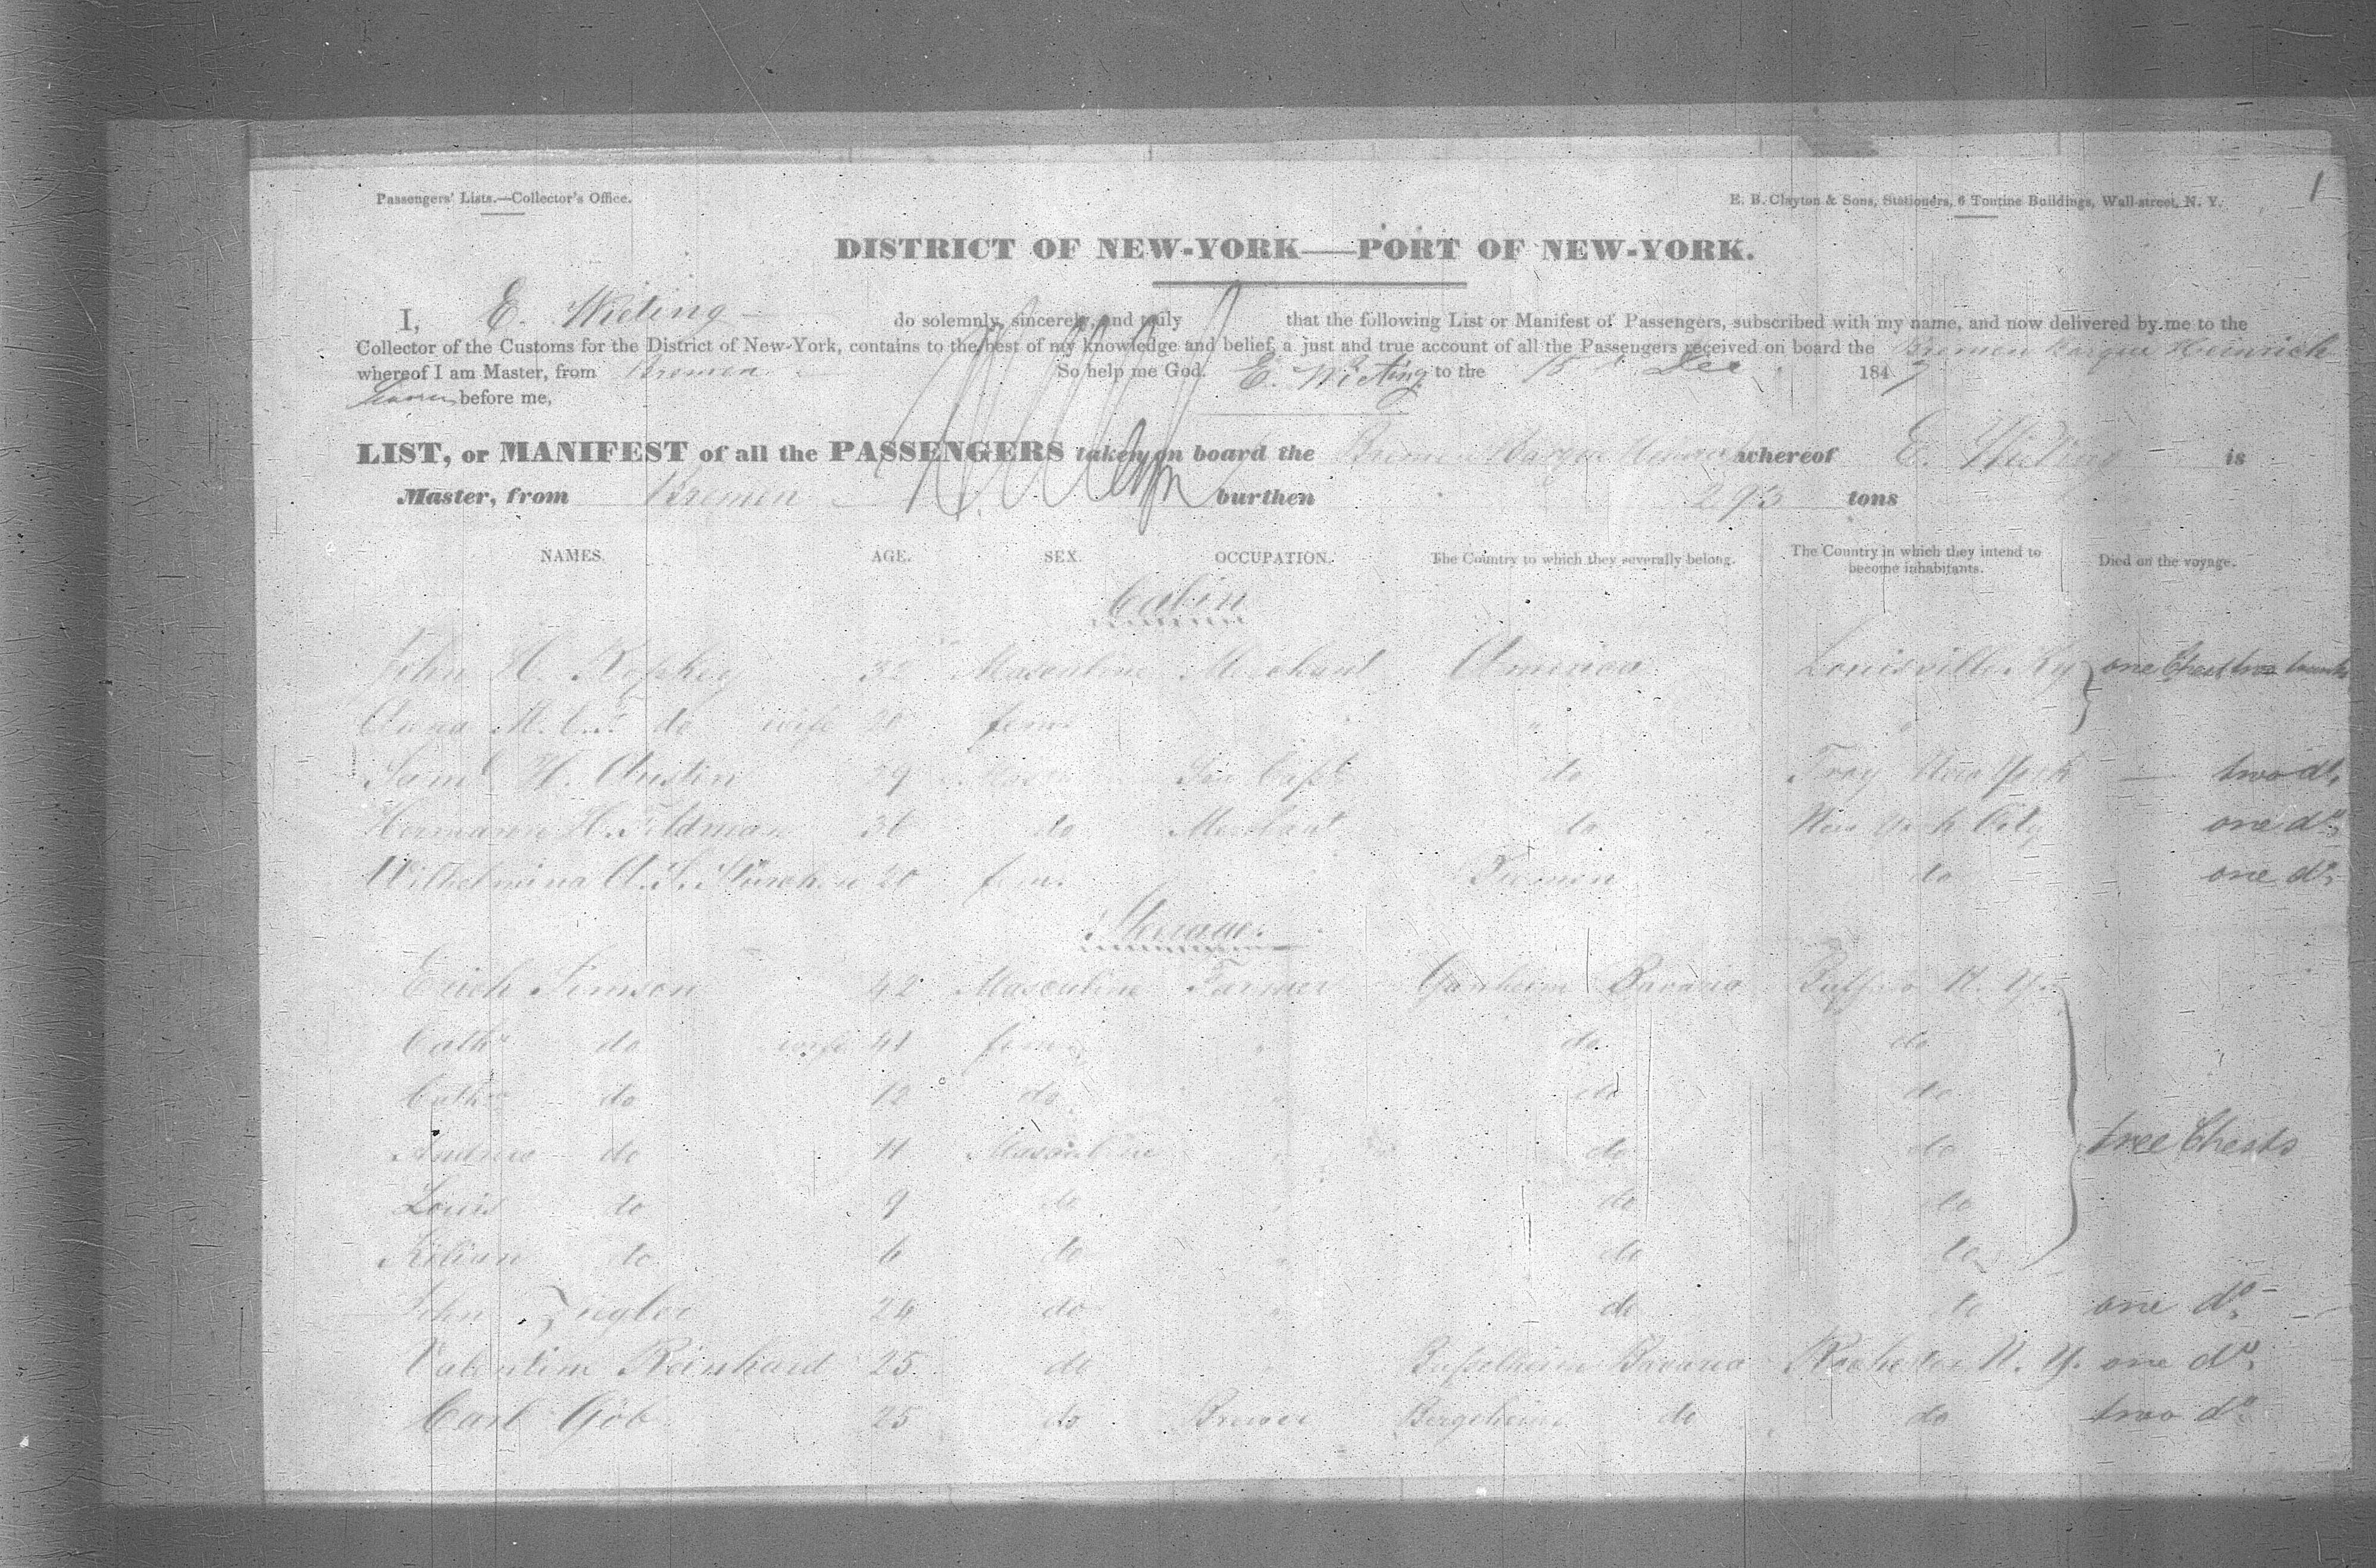 1
Passengers' Lists.—Collector's Office.
E. B. Clayton & Sons, Stationers, 6 Tontine Buildings, Wall-street, N. Y.
DISTRICT OF NEW-YORK—PORT OF NEW-YORK.
I, E. Wieting do solemnly, sincerely, and truly that the following List or Manifest of Passengers, subscribed with my name, and now delivered by me to the
Collector of the Customs for the District of New-York, contains to the best of my knowledge and belief, a just and true account of all the Passengers received on board the Bremen Barque Heinrich
whereof I am Master, from Bremen So help me God. E. Wieting to the 15 Dec 1847
before me,
LIST, or MANIFEST of all the PASSENGERS taken on board the Bremen Barque whereof E. Wieting is
Master, from Bremen burthen 293 tons
NAMES. AGE. SEX. OCCUPATION. The Country to which they severally belong. The Country in which they intend to become inhabitants. Died on the voyage.
Cabin
John H. 32 Masculine Merchant America Louisville Ky one Chest two trunks
Anna do wife 20 fem. " "
Saml H. Austin 29 Sea Capt do Troy New York — two do
Hermann H. Feldman 36 do Merchant do New York City one do
Wilhelmina 20 fem. Bremen do one do
Steerage
Erich Simson 42 Masculine Farmer Bavaria Buffalo N. Y.
Cath. do wife 41 fem. " do do
Cath. do 12 do " do do
Andreas do 11 Masculine " do do tree Chests
Louis do 9 do " do do
Kilian do 6 do " do do
John Ziegler 24 do " do do one do
Valentin Reinhard 25 do " Bavaria Rochester N. Y. one do
Carl Göb 25 do Brewer Bergtheim do do two do